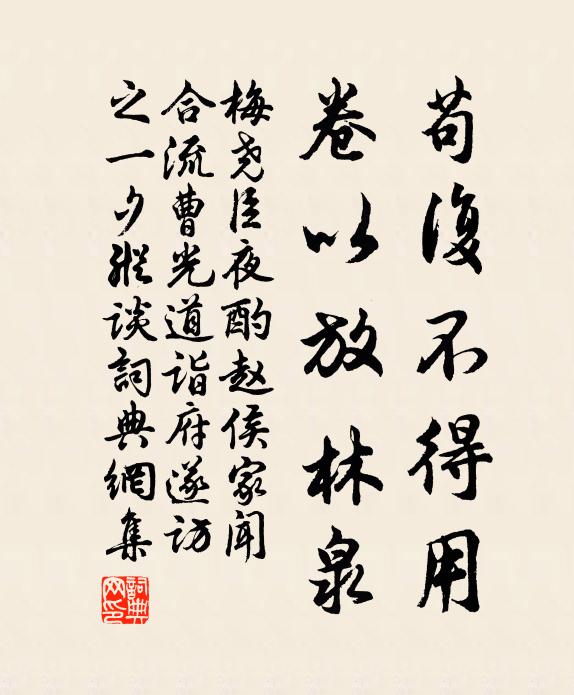 苟復不得用
卷以放林泉
梅尧臣夜酌赵侯家闻
合流曹光道诣府遂访
之一夕縱谈詞典網集
詞典
网印